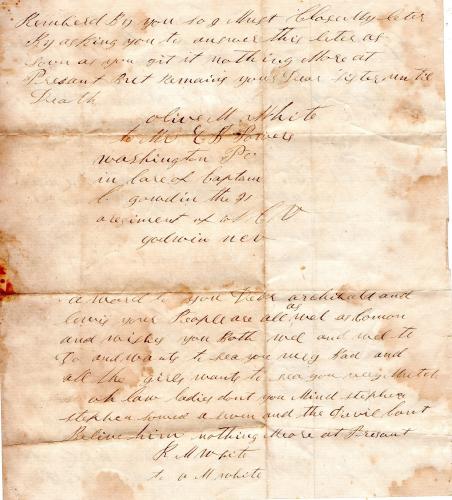 Remherd By you so I Must Close My leter
By asking you to answer this leter as
soon as you git it nothing More at
Presant But Remains your Dear Sister un till
Death
olive M. White
to Mr E
Washington
in Care of Captain
C. gowdin the 91
aregiment of
godwin nev
a word to you Dear archibald and
lewis your People are all as well as Comon
and wishes you Both well and well to
Do and wants to sea you very Bad and
all the girls wants to sea you very Mutch
oh law ladies dont you Mind stephen
stephen a and the Devil Cant
Belive him nothing More at Presant
R M White
to o M White